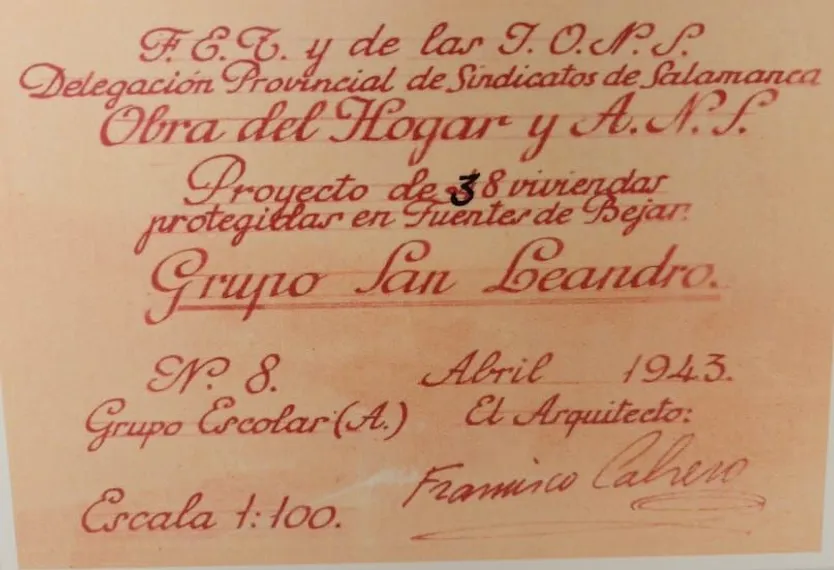 F.E.T. y de las J.O.N.S.
Delegación Provincial de Sindicatos de Salamanca
Obra del Hogar y A.N.S.
Proyecto de 38 viviendas
protegidas en Fuentes de Bejar.
Grupo San Leandro.
Nº. 8. Abril 1943.
Grupo Escolar (A.) El Arquitecto:
Escala 1:100. Francisco Cabrero